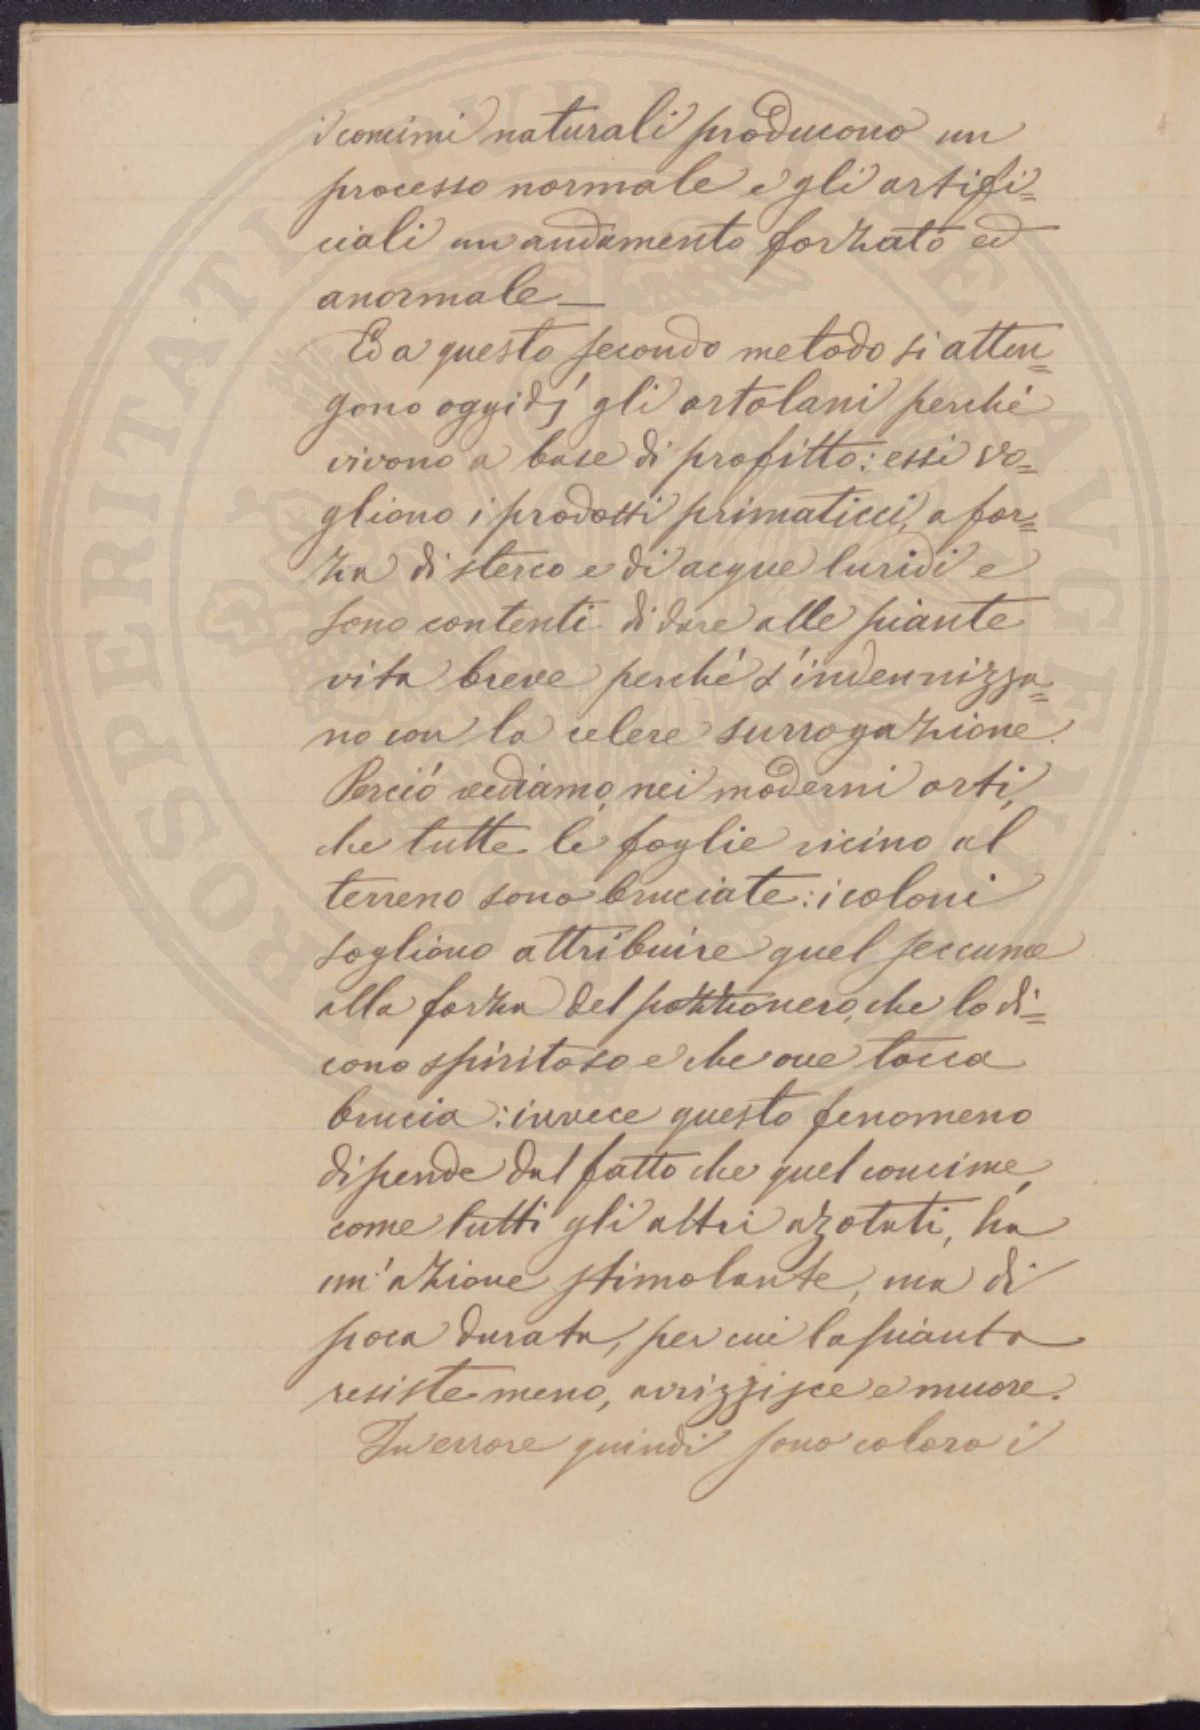 i concimi naturali producono un
processo normale e gli artifi=
ciali un andamento forzato ed
anormale—
Ed a questo secondo metodo si atten=
gono oggidì gli ortolani perché
vivono a base di profitto: essi vo=
gliono i prodotti primaticci, a for=
za di sterco e di acque luridi e
sono contenti di dare alle piante
vita breve perché s'indennizza=
no con la celere surrogazione.
Perció vediamo, nei moderni orti,
che tutte le foglie vicino al
terreno sono bruciate: i coloni
sogliono attribuire quel seccume
alla forza del pozzonero, che lo di=
cono spiritoso e che ove tocca
brucia: invece questo fenomeno
dipende dal fatto che quel concime,
come tutti gli altri azotati, ha
un'azione stimolante, ma di
poca durata, per cui la pianta
resiste meno, avvizzisce e muore.
In errore quindi sono coloro i
PROSPERITATI PVBLICAE AVGENDAE